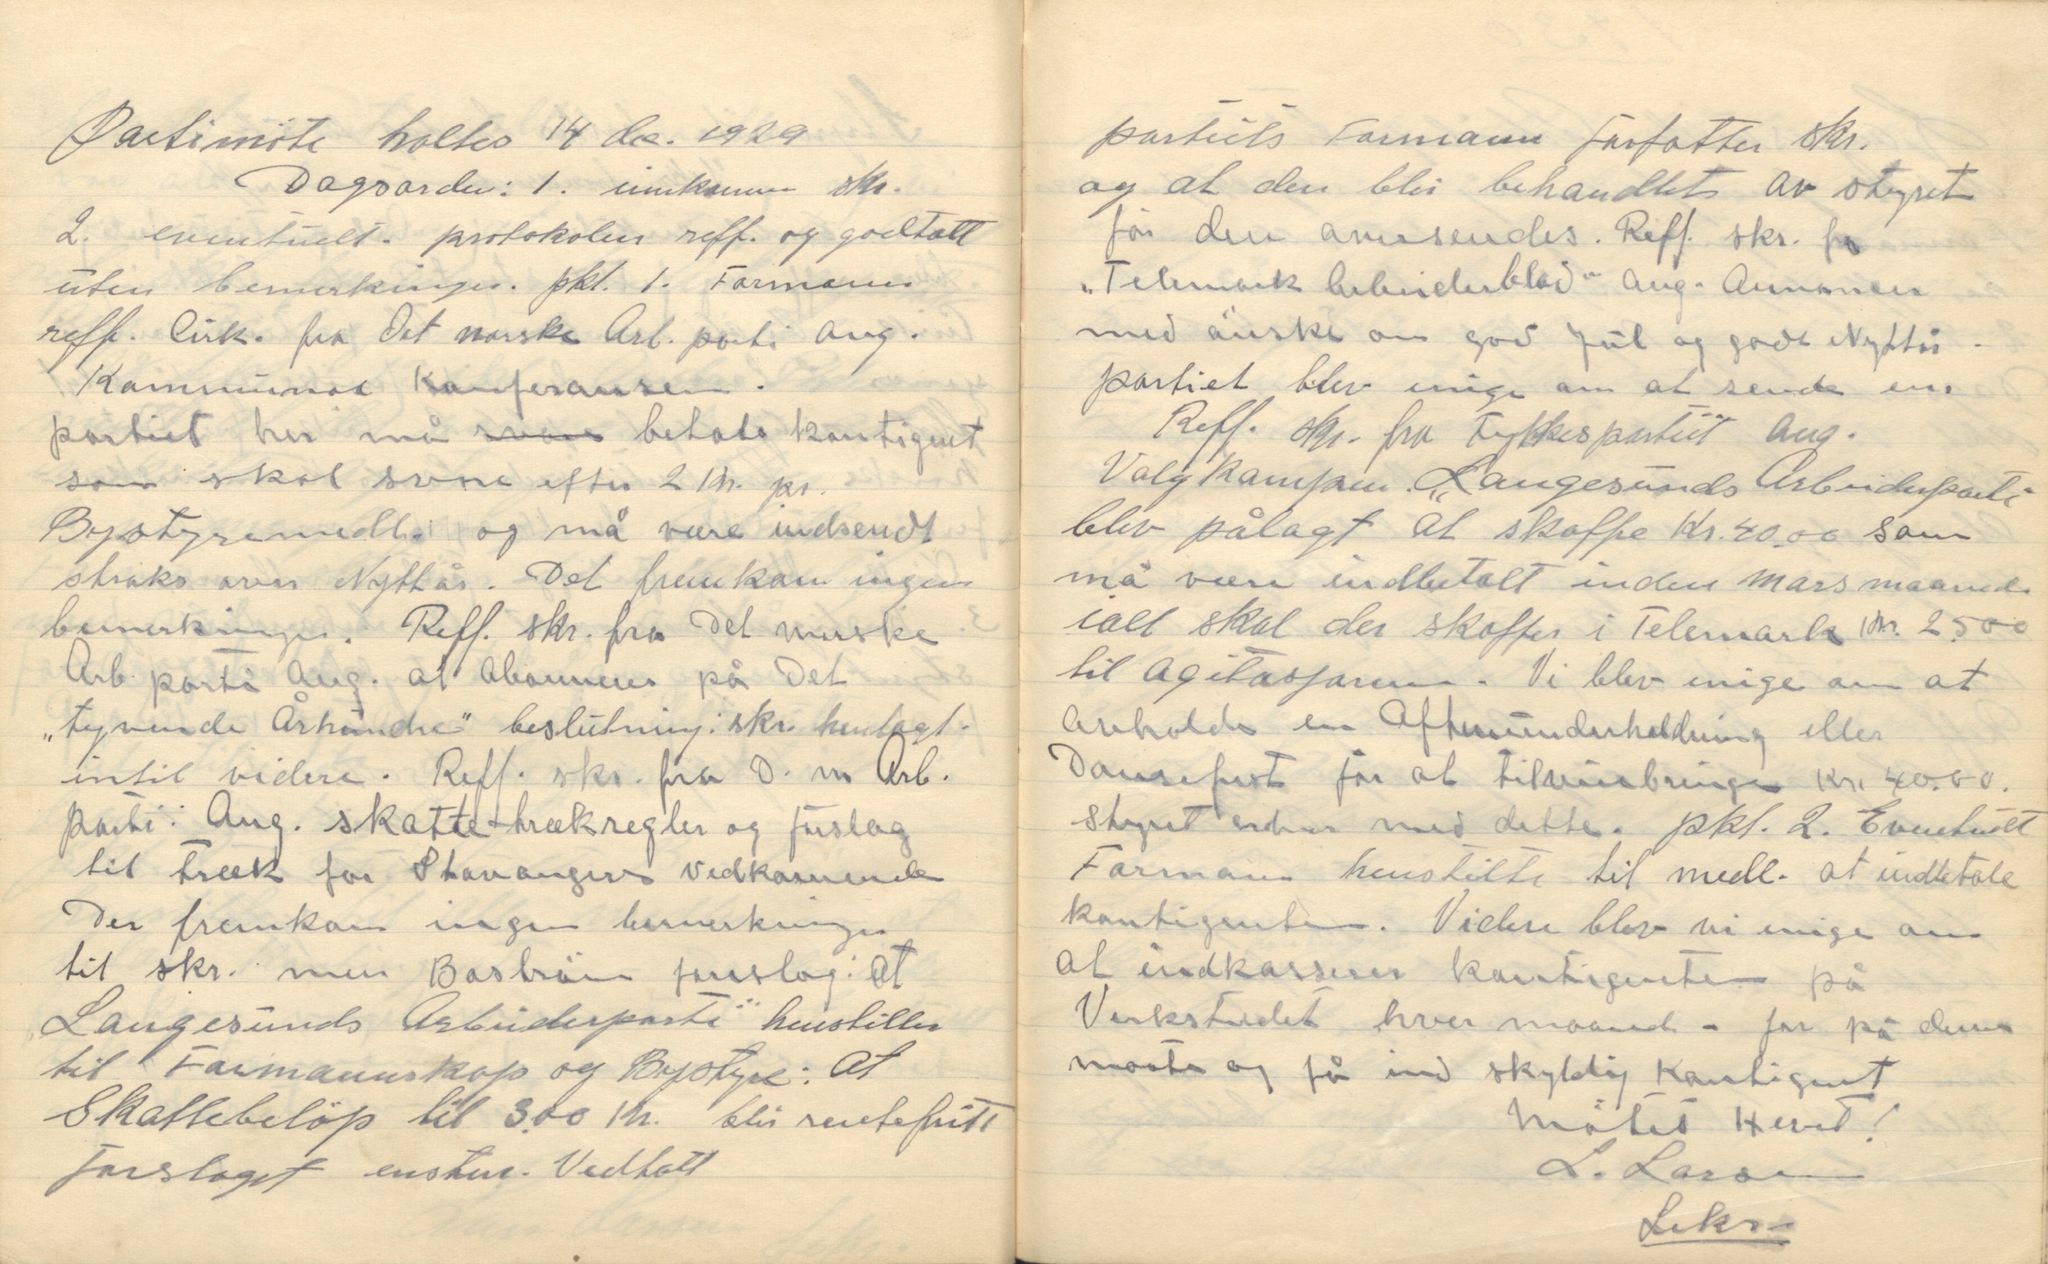 Partimöte holtes 14 des. 1929
Dagsorden: 1. innkomne skr.
2. eventuelt. protokolen reff. og godtatt
uten bemerkninger. pkt. 1. Formann
reff. Cirk. fra Det norske Arb. parti ang.
Kommunal Konferansen.
partiet her må betale kontigent
som skal svare efter 2 Kr. pr.
Bystyremedl. og må være indsendt
straks over Nyttår. Det fremkom ingen
bemerkninger. Reff. skr. fra Det norske
Arb. parti Ang. at abonnere på Det
„tyvende Århundre" beslutning: skr. henlagt
intil videre. Reff. skr. fra D. n Arb.
parti: Ang. skatte-trækregler og forslag
til Træk for Stavangers vedkomende
Der fremkom ingen bemerkninger
til skr. men Boström forslag: at
„Langesunds Arbeiderparti" henstiller
til Formannskap og Bystyre: At
Skattebelöp til 300 Kr. blir rentefritt
Forslaget enstem. Vedtatt
partiets Formann forfatter skr.
og at den blir behandlet av styret
før den avversendes. Reff. skr. fra
„Telemark Arbeiderblad" ang. Annonser
med önske om god Jul og godt Nyttår.
partiet blev enige om at sende en
Reff. skr. fra Fylkespartiet ang.
Valgkampen. „Langesunds Arbeiderparti
blev pålagt at skaffe Kr. 40.00 som
må være indbetalt inden mars maaned.
ialt skal der skaffes i Telemark Kr. 2500
til agitasjonen. Vi blev enige om at
avholde en Aftenunderholdning eller
Dansefest for at tilveiebringe Kr. 40.00.
styret ordner med dette. pkt. 2. Eventuelt
Formann henstilte til medl. at indbetale
kontigenten. Videre blev vi enige om
at indkassere kontigenten på
Verkstedet hver maaned - for på denne
maate og få ind skyldig Kontigent
Mötet Hevet!
L. Larsen
Sekr.